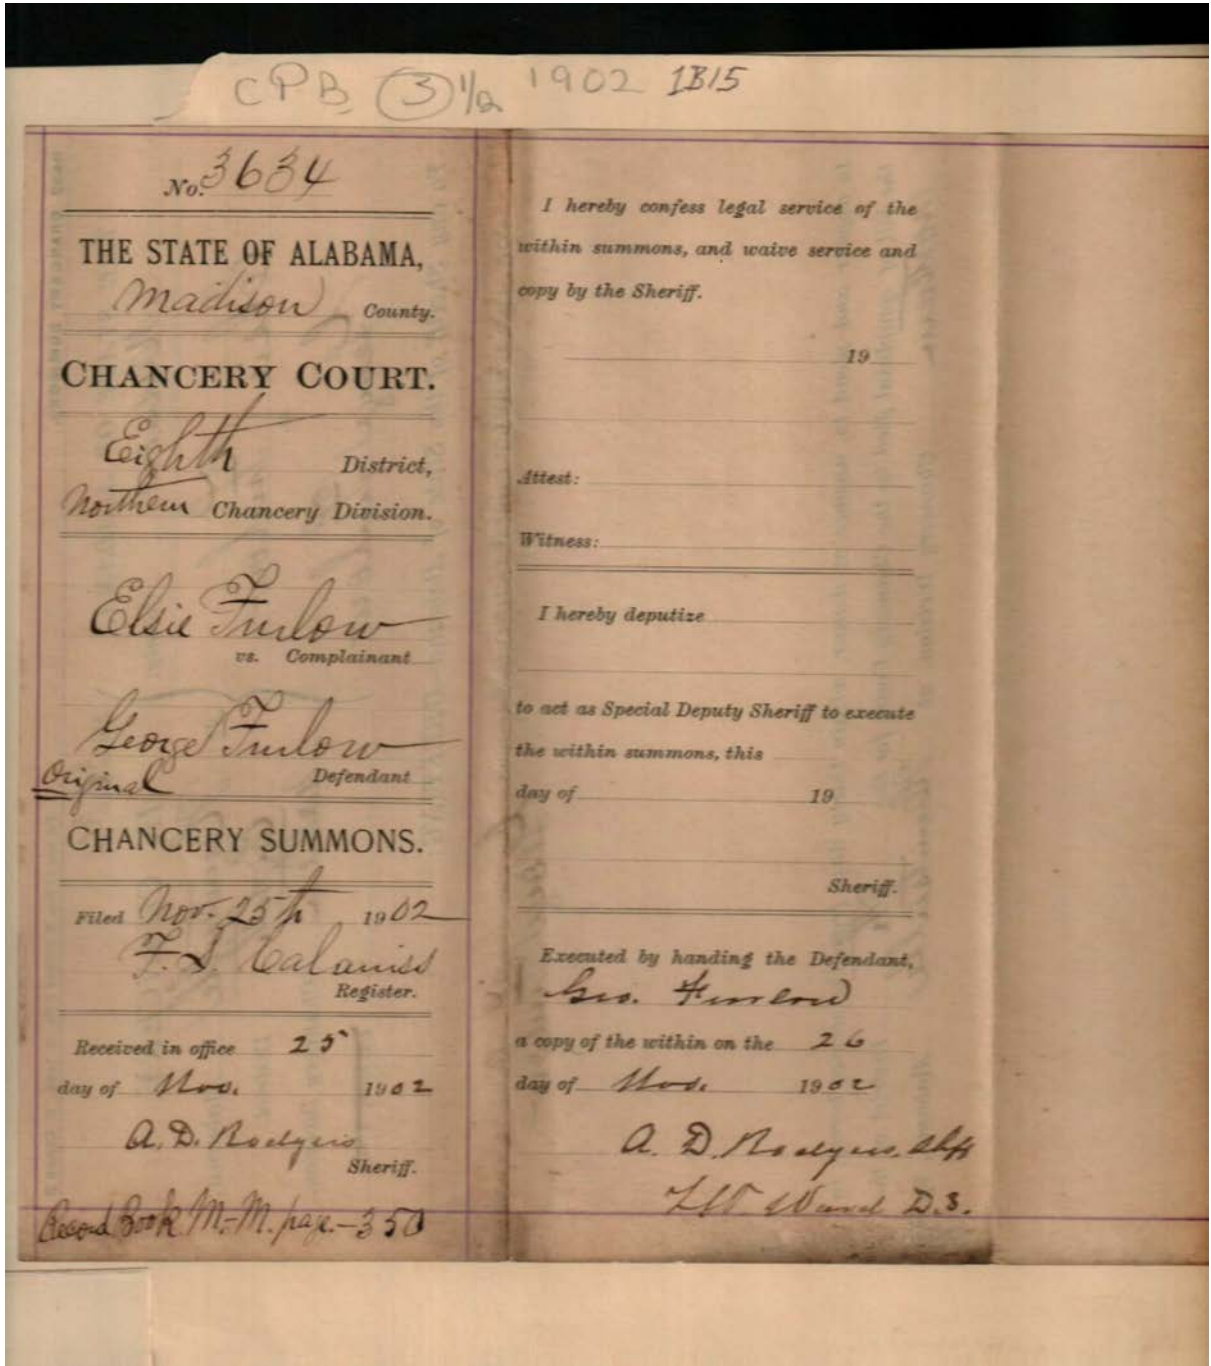 CPB 3 1/2 1902 1B15
No. 3634
THE STATE OF ALABAMA,
Madison County.
CHANCERY COURT.
Eighth District,
Northern Chancery Division.
Elsie Furlow
vs. Complainant
George Furlow
Original Defendant
CHANCERY SUMMONS.
Filed Nov. 25th 1902
F. S. Calaniss
Register.
Received in office 25
day of Nov. 1902
A. D. Rodgers
Sheriff.
Record Book M.-M. page.-350
I hereby confess legal service of the
within summons, and waive service and
copy by the Sheriff.
19
Attest:
Witness:
I hereby deputize
to act as Special Deputy Sheriff to execute
the within summons, this
day of 19
Sheriff.
Executed by handing the Defendant,
Geo. Furlow
a copy of the within on the 26
day of Nov. 1902
A. D. Rodgers, Shff
Ward D.S.